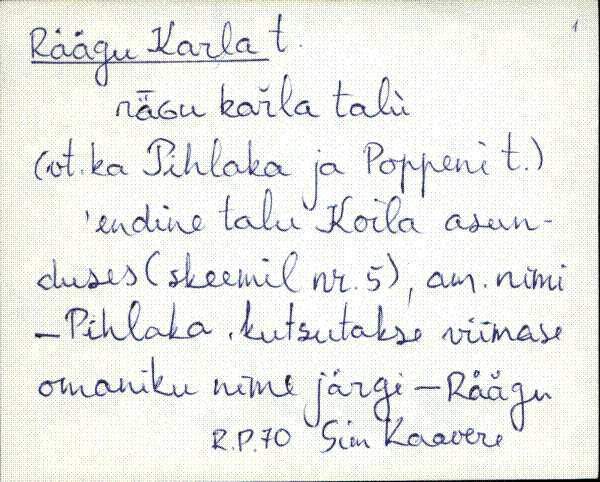 Räägu Karla t. 1
rāɢu kařla talù
(vt. ka Pihlaka ja Poppeni t.)
'endine talu Koila asun-
duses (skeemil nr. 5), am. nimi
– Pihlaka. kutsutakse viimase
omaniku nime järgi – Räägu
R.P.70 Sim Kaavere